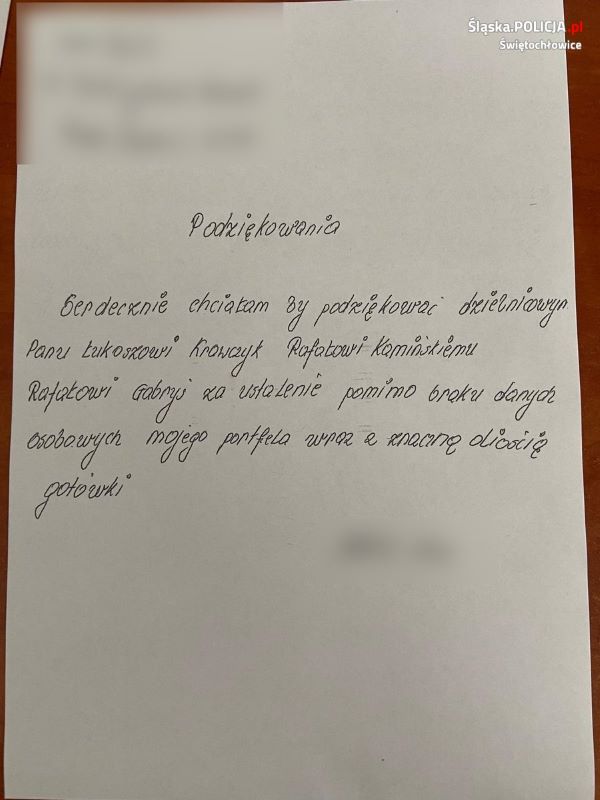 Śląska.POLICJA.pl
Świętochłowice
Podziękowania
Serdecznie chciałam by podziękować dzielnicowym
Panu Łukaszowi Krawczyk Rafałowi Kamińskiemu
Rafałowi Gabryś za ustalenie pomimo braku danych
osobowych mojego portfela wraz z znaczną ilością
gotówki